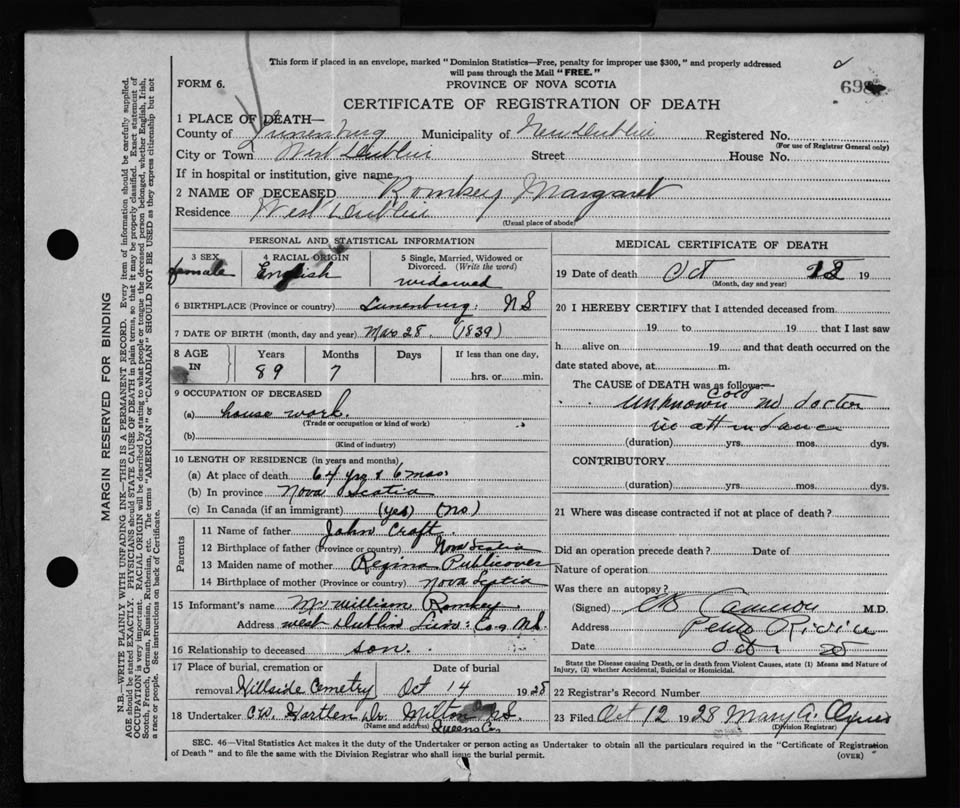 This form if placed in an envelope, marked "Dominion Statistics—Free, penalty for improper use $300," and properly addressed
will pass through the Mail "FREE."
FORM 6. PROVINCE OF NOVA SCOTIA 698
CERTIFICATE OF REGISTRATION OF DEATH
1 PLACE OF DEATH—
County of Lunenburg Municipality of New Dublin Registered No.
(For use of Registrar General only)
City or Town West Dublin Street House No.
If in hospital or institution, give name
2 NAME OF DECEASED Romkey Margaret
Residence West Dublin
(Usual place of abode)
PERSONAL AND STATISTICAL INFORMATION
3 SEX 4 RACIAL ORIGIN 5 Single, Married, Widowed or
Divorced. (Write the word)
female English widowed
6 BIRTHPLACE (Province or country) Lunenburg: NS
7 DATE OF BIRTH (month, day and year) Mar 28 (1839)
8 AGE IN Years Months Days If less than one day,
89 7 hrs. or min.
9 OCCUPATION OF DECEASED
(a) house work.
(Trade or occupation or kind of work)
(b)
(Kind of industry)
10 LENGTH OF RESIDENCE (in years and months)
(a) At place of death 64 yrs & 6 mos
(b) In province Nova Scotia
(c) In Canada (if an immigrant) (yes) (no)
Parents
11 Name of father John Croft
12 Birthplace of father (Province or country) Nova Scotia
13 Maiden name of mother Regina Publicover
14 Birthplace of mother (Province or country) Nova Scotia
15 Informant's name Mr William Romkey
Address West Dublin Lun: Co, NS.
16 Relationship to deceased son.
17 Place of burial, cremation or Date of burial
removal Hillside Cemetry Oct 14 1928
18 Undertaker Milton NS.
(Name and address) Queens Co
MEDICAL CERTIFICATE OF DEATH
19 Date of death Oct 12 19
(Month, day and year)
20 I HEREBY CERTIFY that I attended deceased from
19 to 19 that I last saw
h alive on 19 and that death occurred on the
date stated above, at m.
The CAUSE of DEATH was as follows:—
unknown cold no doctor
in attendance
(duration) yrs. mos. dys.
CONTRIBUTORY
(duration) yrs. mos. dys.
21 Where was disease contracted if not at place of death?
Did an operation precede death? Date of
Nature of operation
Was there an autopsy?
(Signed) Cameron M.D.
Address Petite Riviere
Date Oct
State the Disease causing Death, or in death from Violent Causes, state (1) Means and Nature of
Injury, (2) whether Accidental, Suicidal or Homicidal.
22 Registrar's Record Number
23 Filed Oct 12 1928 Mary A.
(Division Registrar)
SEC. 46—Vital Statistics Act makes it the duty of the Undertaker or person acting as Undertaker to obtain all the particulars required in the "Certificate of Registration
of Death" and to file the same with the Division Registrar who shall issue the burial permit. (OVER)
MARGIN RESERVED FOR BINDING
N.B.—WRITE PLAINLY WITH UNFADING INK—THIS IS A PERMANENT RECORD. Every item of information should be carefully supplied.
AGE should be stated EXACTLY. PHYSICIANS should STATE CAUSE OF DEATH in plain terms, so that it may be properly classified. Exact statement of
OCCUPATION is very important. RACIAL ORIGIN will be described by stating to what people or tongue the deceased person belonged, whether English, Irish,
Scotch, French, German, Russian, Ruthenian, etc. The terms "AMERICAN" or "CANADIAN" SHOULD NOT BE USED as they express citizenship but not
a race or people. See instructions on back of Certificate.